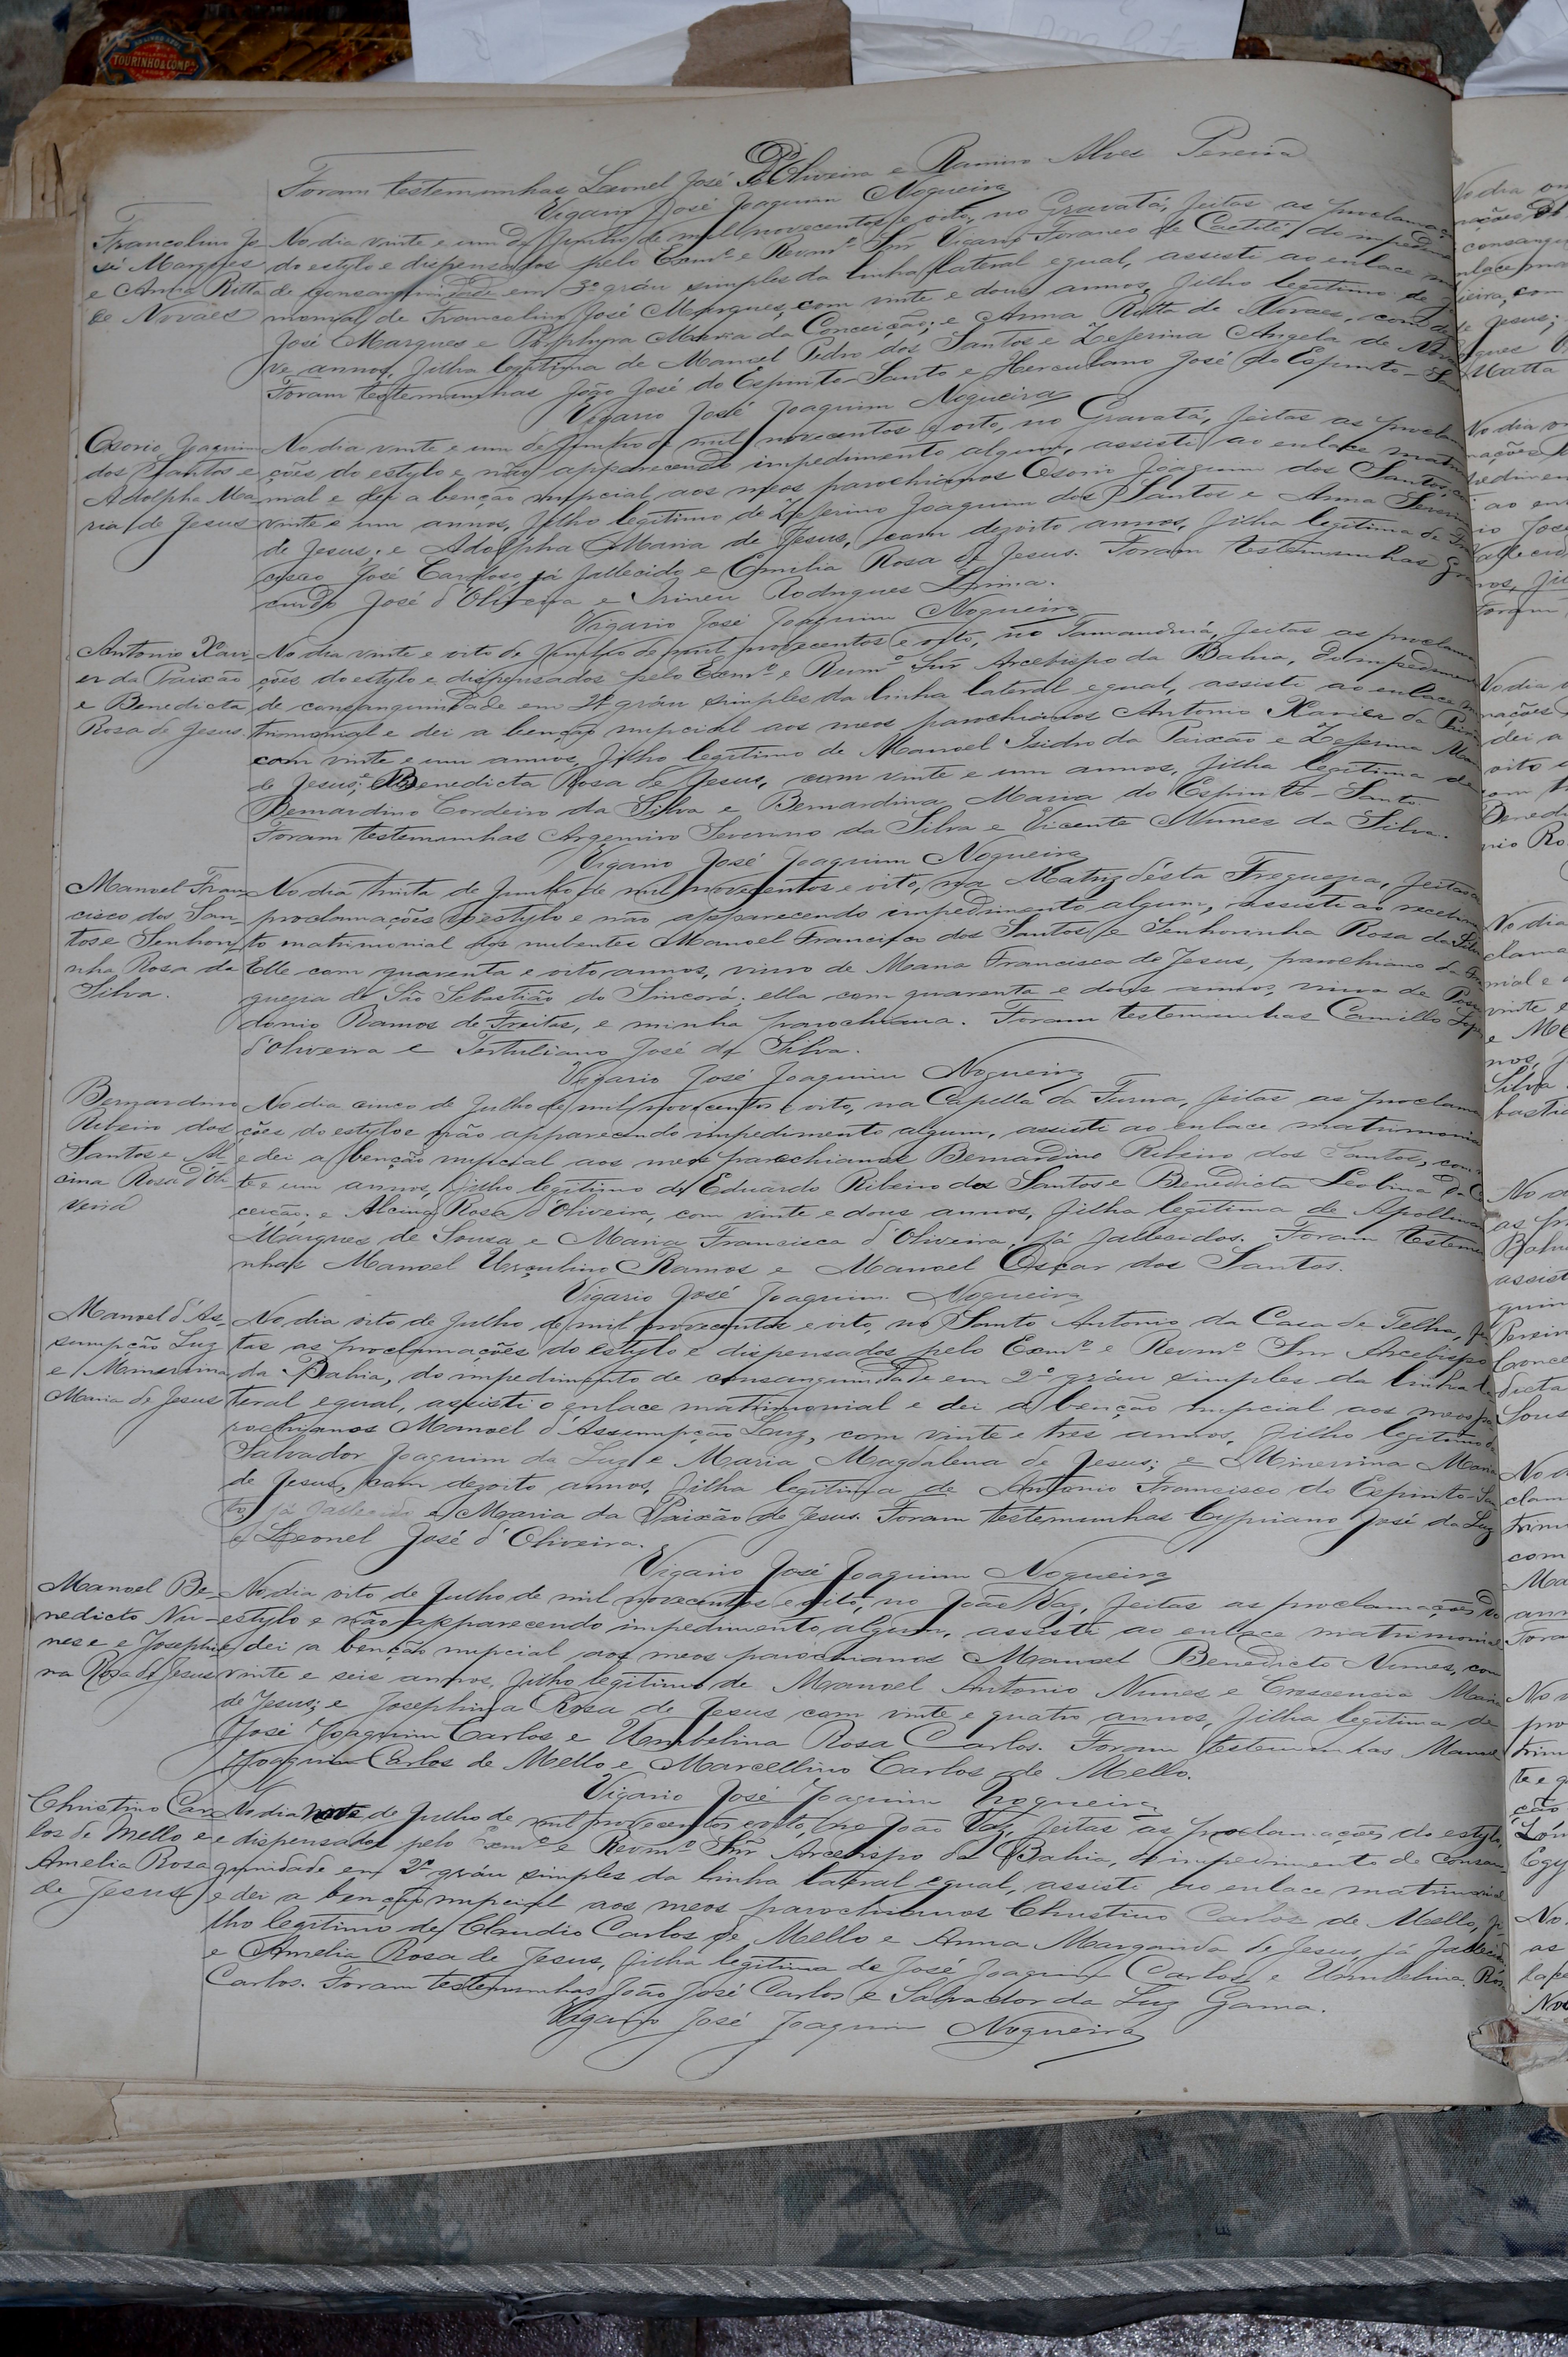 TOURINHO & COMP.
Foram testemunhas Leonel José d'Oliveira e Ramiro Alves Pereira
Vigario José Joaquim Nogueira
Francolino Jo-
sé Marques
e Anna Ritta
de Novaes
No dia vinte e um de Junho de mil novecentos e oito, no Gravatá, feitas as proclamaç
do estylo e dispensados pelo Exmº e Revmº Snr Vigario Foraneo de Caetité, do impedime
de consanguinidade em 3º gráu simples da linha lateral egual, assisti ao enlace
monial de Francolino José Marques, com vinte e dous annos, filho legitimo de
José Marques e Porphyra Maria da Conceição; e Anna Ritta de Novaes, com de
ve annos, filha legitima de Manoel Pedro dos Santos e Zeferina Angela de
Foram testemunhas João José do Espirito-Santo e Herculano José do Espirito-
Vigario José Joaquim Nogueira
Osorio Joaquim
dos Santos e
Adolpha Ma
ria de Jesus
No dia vinte e um de Junho de mil novecentos e oito, no Gravatá, feitas as proclam
ções do estylo e não apparecendo impedimento algum, assisti ao enlace matri
mal e dei a benção nupcial aos meos parochianos Osorio Joaquim dos Santos,
vinte e um annos, filho legitimo de Zeferino Joaquim dos Santos e Anna Severi
de Jesus; e Adolpha Maria de Jesus, com dezoito annos, filha legitima de
cisco José Cardoso já fallecido e Emilia Rosa de Jesus. Foram testemunhas
cundo José d'Oliveira e Irineu Rodrigues Lima.
Vigario José Joaquim Nogueira
Antonio Xavi-
er da Paixão
e Benedicta
Rosa de Jesus.
No dia vinte e oito de Junho de mil novecentos e oito, no Tamanduá, feitas as proclama
ções do estylo e dispensados pelo Exmº e Revmº Snr Arcebispo da Bahia, do impedimen
de consanguinidade em 2º gráu simples da linha lateral egual, assisti ao enlace
trimonial e dei a benção nupcial aos meos parochianos Antonio Xavier da
com vinte e um annos, filho legitimo de Manoel Isidro da Paixão e Zeferina
de Jesus; e Benedicta Rosa de Jesus, com vinte e um annos, filha legitima de
Bernardino Cordeiro da Silva e Bernardina Maria do Espirito-Santo.
Foram testemunhas Argemiro Severino da Silva e Vicente Nunes da Silva.
Vigario José Joaquim Nogueira
Manoel Fran-
cisco dos San-
tos e Senhori-
nha Rosa da
Silva.
No dia trinta de Junho de mil novecentos e oito, na Matriz d'ésta Freguezia, feitas
proclamações do estylo e não apparecendo impedimento algum, assisti ao recebim
to matrimonial dos nubentes Manoel Francisco dos Santos e Senhorinha Rosa da Silva
Elle com quarenta e oito annos, viuvo de Maria Francisca de Jesus, parochiano da Fre
guezia de São Sebastião do Sincorá; ella com quarenta e dous annos, viuva de
donio Ramos de Freitas, e minha parochiana. Foram testemunhas Camillo
d'Oliveira e Tertuliano José da Silva.
Vigario José Joaquim Nogueira
Bernardino
Ribeiro dos
Santos e Al
cina Rosa d'Oli
veira
No dia cinco de Julho de mil novecentos e oito, na Capella da Furna, feitas as proclama
ções do estylo e não apparecendo impedimento algum, assisti ao enlace matrimonia
e dei a benção nupcial aos meos parochianos Bernardino Ribeiro dos Santos, com
te e um annos, filho legitimo de Eduardo Ribeiro dos Santos e Benedicta Leolina da
ceição; e Alcina Rosa d'Oliveira, com vinte e dous annos, filha legitima de Apollina
Marques de Sousa e Maria Francisca d'Oliveira, já fallecidos. Foram testemu
nhas Manoel Ursulino Ramos e Manoel Oscar dos Santos.
Vigario José Joaquim Nogueira
Manoel d'As-
sumpção Luz
e Minervina
Maria de Jesus
No dia oito de Julho de mil novecentos e oito, no Santo Antonio da Casa de Telha, fei
tas as proclamações do estylo e dispensados pelo Exmº e Revmº Snr Arcebispo
da Bahia, do impedimento de consanguinidade em 2º gráu simples da linha la
teral egual, assisti o enlace matrimonial e dei a benção nupcial aos meos pa
rochianos Manoel d'Assumpção Luz, com vinte e tres annos, filho legitimo de
Salvador Joaquim da Luz e Maria Magdalena de Jesus; e Minervina Maria
de Jesus, com dezoito annos, filha legitima de Antonio Francisco do Espirito-San
to, já fallecido e Maria da Paixão de Jesus. Foram testemunhas Cypriano José da Luz
e Leonel José d'Oliveira.
Vigario José Joaquim Nogueira
Manoel Be-
nedicto Nu-
nes e Josephi
na Rosa de Jesus
No dia oito de Julho de mil novecentos e oito, no João Vaz, feitas as proclamações do
estylo e não apparecendo impedimento algum, assisti ao enlace matrimonial
e dei a benção nupcial aos meos parochianos Manoel Benedicto Nunes, com
vinte e seis annos, filho legitimo de Manoel Antonio Nunes e Crescencia Maria
de Jesus; e Josephina Rosa de Jesus com vinte e quatro annos, filha legitima de
José Joaquim Carlos e Umbelina Rosa Carlos. Foram testemunhas Manoel
Joaquim Carlos de Mello e Marcellino Carlos de Mello.
Vigario José Joaquim Nogueira
Christino Car
los de Mello e
Amelia Rosa
de Jesus
No dia nove de Julho de mil novecentos e oito, no João Vaz, feitas as proclamações do estylo,
e dispensados pelo Exmº e Revmº Snr Arcebispo da Bahia, do impedimento de consan
guinidade em 2º gráu simples da linha lateral egual, assisti ao enlace matrimonial
e dei a benção nupcial aos meos parochianos Christino Carlos de Mello, fi
lho legitimo de Claudio Carlos de Mello e Anna Margarida de Jesus, já fallecida
e Amelia Rosa de Jesus, filha legitima de José Joaquim Carlos e Umbelina Rosa
Carlos. Foram testemunhas João José Carlos e Salvador da Luz Gama.
Vigario José Joaquim Nogueira